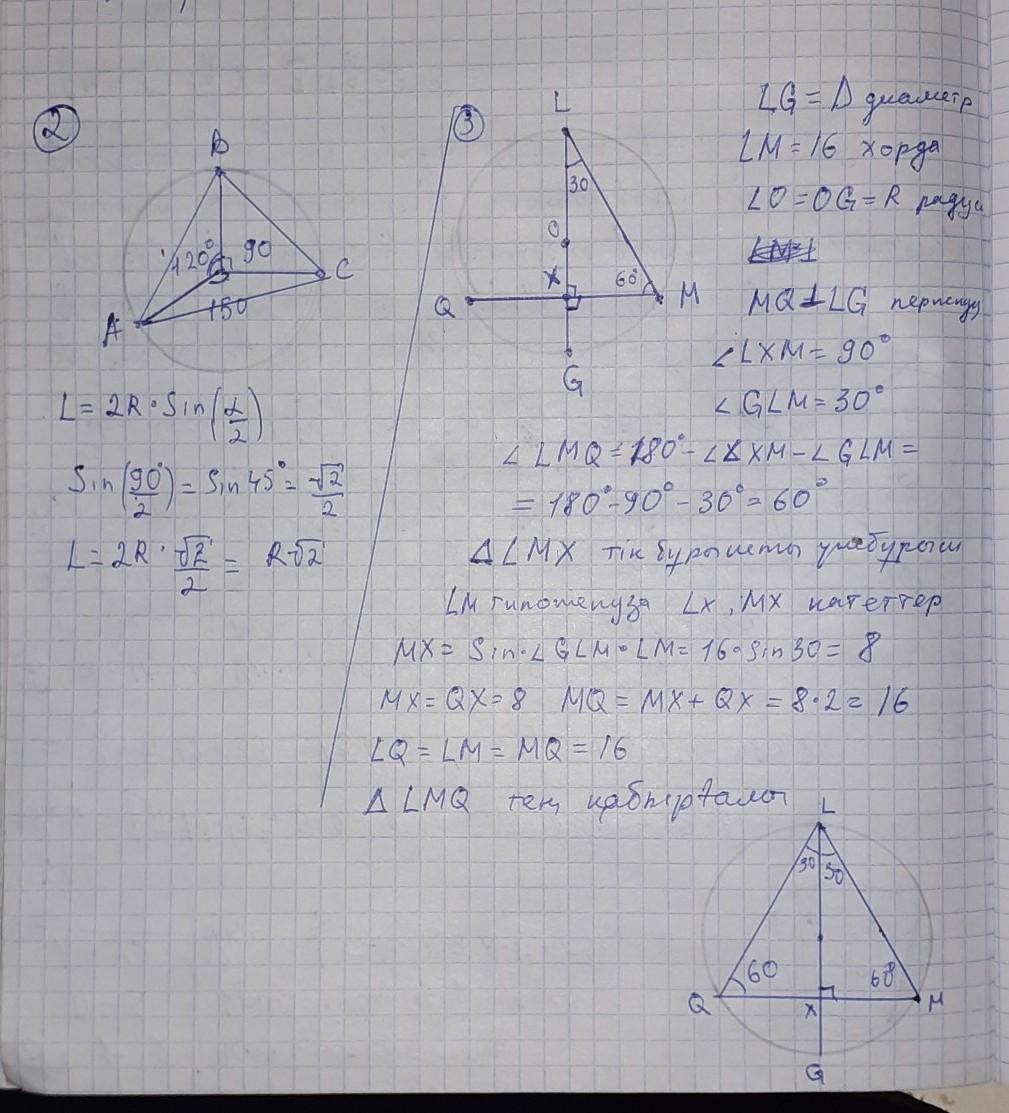 2
B
120° 90
C
150
A
L = 2R · Sin(α/2)
Sin(90°/2) = Sin 45° = √2/2
L = 2R · √2/2 = R√2
3
L
30
O
X
60°
Q
M
G
LG = D диаметр
LM = 16 хорда
LO = OG = R радиу
MQ ⊥ LG перпенд
∠LXM = 90°
∠GLM = 30°
∠LMQ = 180° - ∠LXM - ∠GLM =
= 180° - 90° - 30° = 60°
Δ LMX тік бұрышты үшбұрыш
LM гипотенуза LX, MX катеттер
MX = Sin · ∠GLM · LM = 16 · Sin 30 = 8
MX = QX = 8 MQ = MX + QX = 8 · 2 = 16
LQ = LM = MQ = 16
Δ LMQ тең қабырғалы
L
30 30
60
60
Q
X
M
G